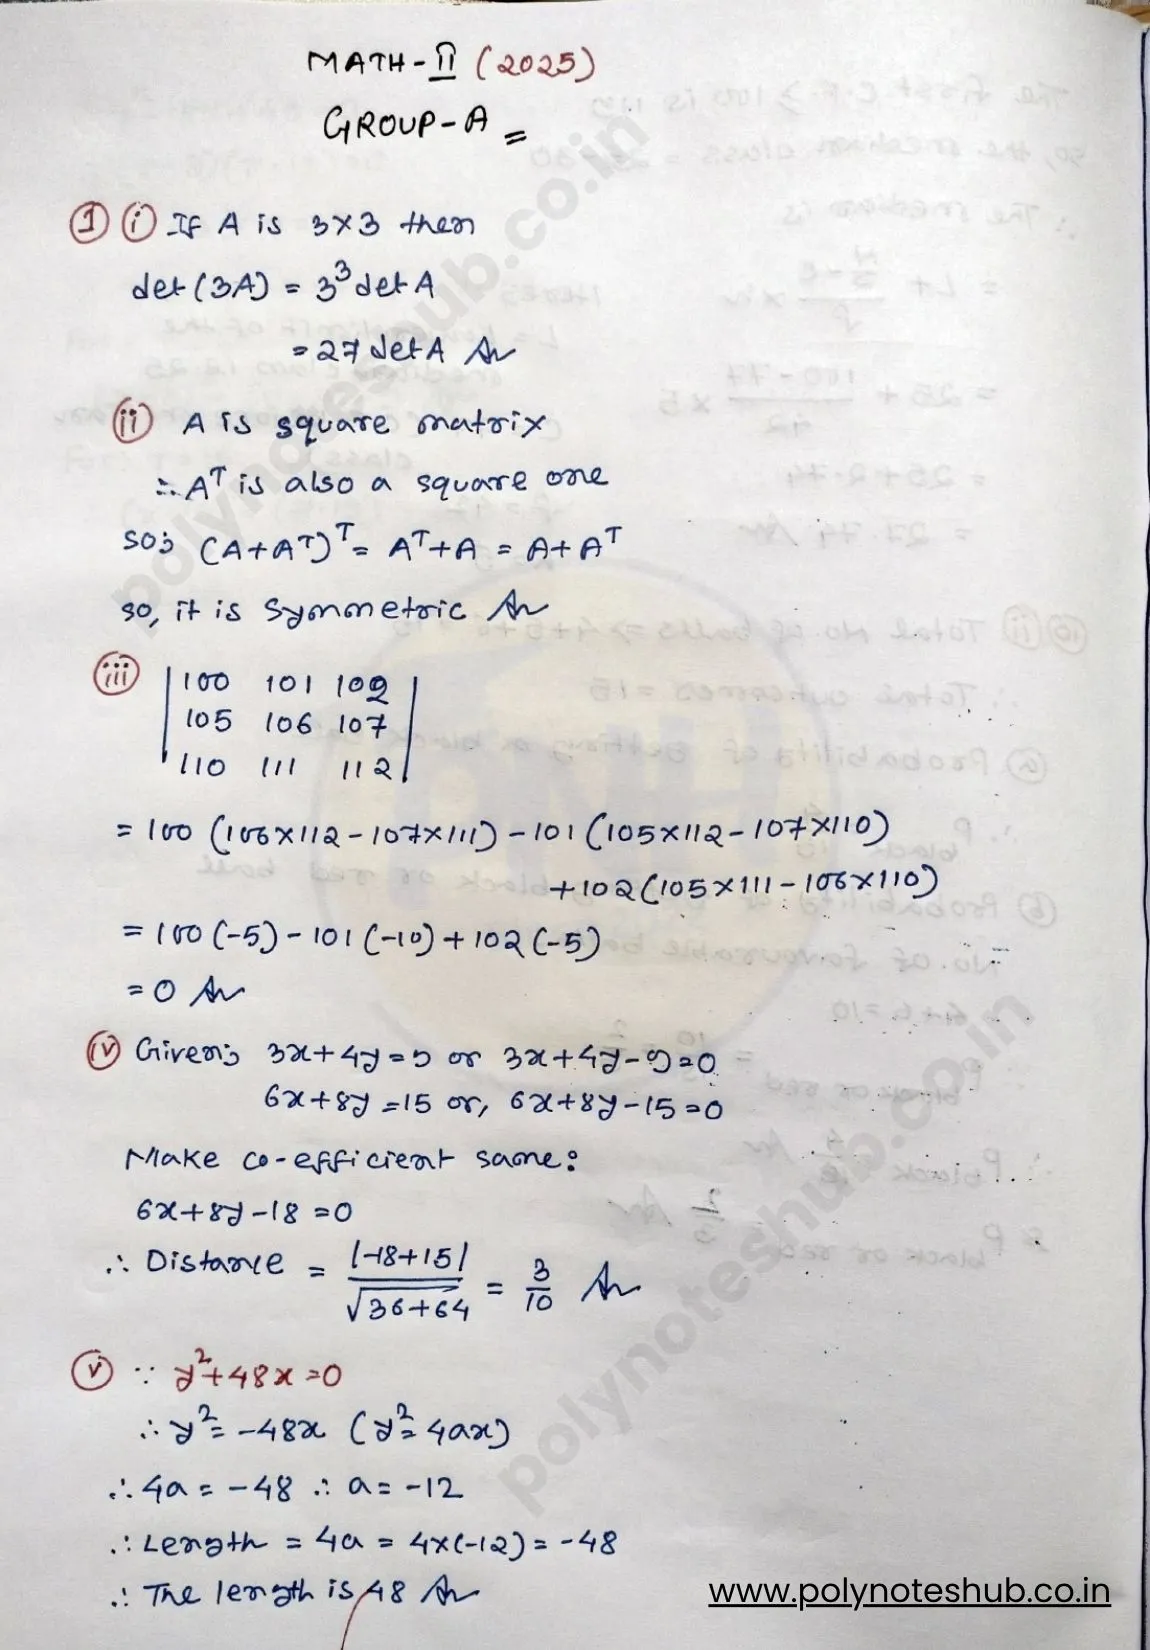 MATH-II (2025)
GROUP-A =
1 i If A is 3×3 then
det(3A) = 3³ det A
= 27 det A An
ii A is square matrix
∴ Aᵀ is also a square one
so; (A+Aᵀ)ᵀ = Aᵀ+A = A+Aᵀ
so, it is symmetric An
iii |100 101 102|
|105 106 107|
|110 111 112|
= 100 (106×112-107×111) - 101 (105×112-107×110)
+102(105×111-106×110)
= 100(-5) - 101(-10) + 102(-5)
= 0 An
iv Given; 3x+4y=9 or 3x+4y-9=0
6x+8y=15 or, 6x+8y-15=0
Make co-efficient same:
6x+8y-18=0
∴ Distance = |-18+15| / √36+64 = 3/10 An
v ∵ y²+48x=0
∴ y² = -48x (y²=4ax)
∴ 4a = -48 ∴ a = -12
∴ Length = 4a = 4×(-12) = -48
∴ The length is 48 An
www.polynoteshub.co.in
polynoteshub.co.in
polynoteshub.co.in
PNH